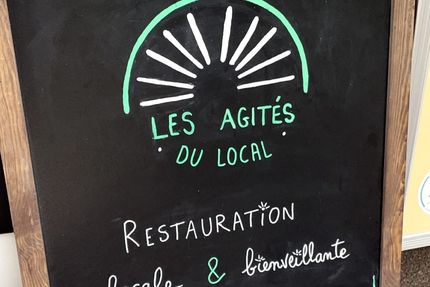 LES AGITÉS
DU LOCAL
RESTAURATION
locale & bienveillante